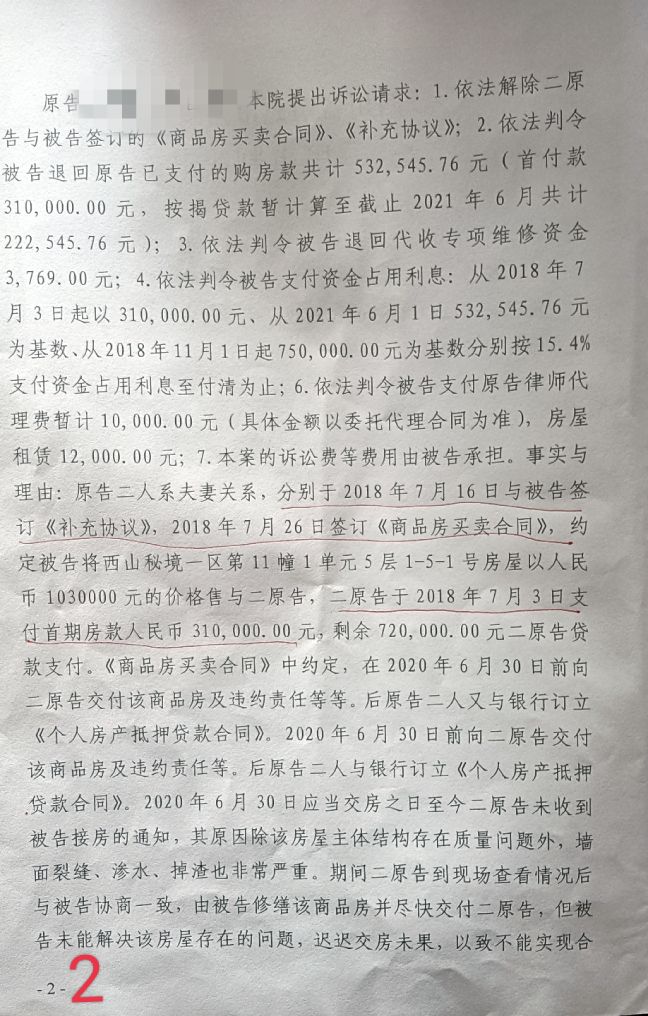 原告 本院提出诉讼请求：1.依法解除二原
告与被告签订的《商品房买卖合同》、《补充协议》；2.依法判令
被告退回原告已支付的购房款共计 532,545.76 元（首付款
310,000.00 元，按揭贷款暂计算至截止 2021 年 6 月共计
222,545.76 元）；3.依法判令被告退回代收专项维修资金
3,769.00 元；4.依法判令被告支付资金占用利息：从 2018 年 7
月 3 日起以 310,000.00 元、从 2021 年 6 月 1 日 532,545.76 元
为基数、从2018年11月1日起750,000.00元为基数分别按15.4%
支付资金占用利息至付清为止；6.依法判令被告支付原告律师代
理费暂计 10,000.00 元（具体金额以委托代理合同为准），房屋
租赁 12,000.00 元；7.本案的诉讼费等费用由被告承担。事实与
理由：原告二人系夫妻关系，分别于 2018 年 7 月 16 日与被告签
订《补充协议》，2018 年 7 月 26 日签订《商品房买卖合同》，约
定被告将西山秘境一区第 11 幢 1 单元 5 层 1-5-1 号房屋以人民
币 1030000 元的价格售与二原告，二原告于 2018 年 7 月 3 日支
付首期房款人民币 310,000.00 元，剩余 720,000.00 元二原告贷
款支付。《商品房买卖合同》中约定，在 2020 年 6 月 30 日前向
二原告交付该商品房及违约责任等等。后原告二人又与银行订立
《个人房产抵押贷款合同》。2020 年 6 月 30 日前向二原告交付
该商品房及违约责任等。后原告二人与银行订立《个人房产抵押
贷款合同》。2020 年 6 月 30 日应当交房之日至今二原告未收到
被告接房的通知，其原因除该房屋主体结构存在质量问题外，墙
面裂缝、渗水、掉渣也非常严重。期间二原告到现场查看情况后
与被告协商一致，由被告修缮该商品房并尽快交付二原告，但被
告未能解决该房屋存在的问题，迟迟交房未果，以致不能实现合
- 2 -
2